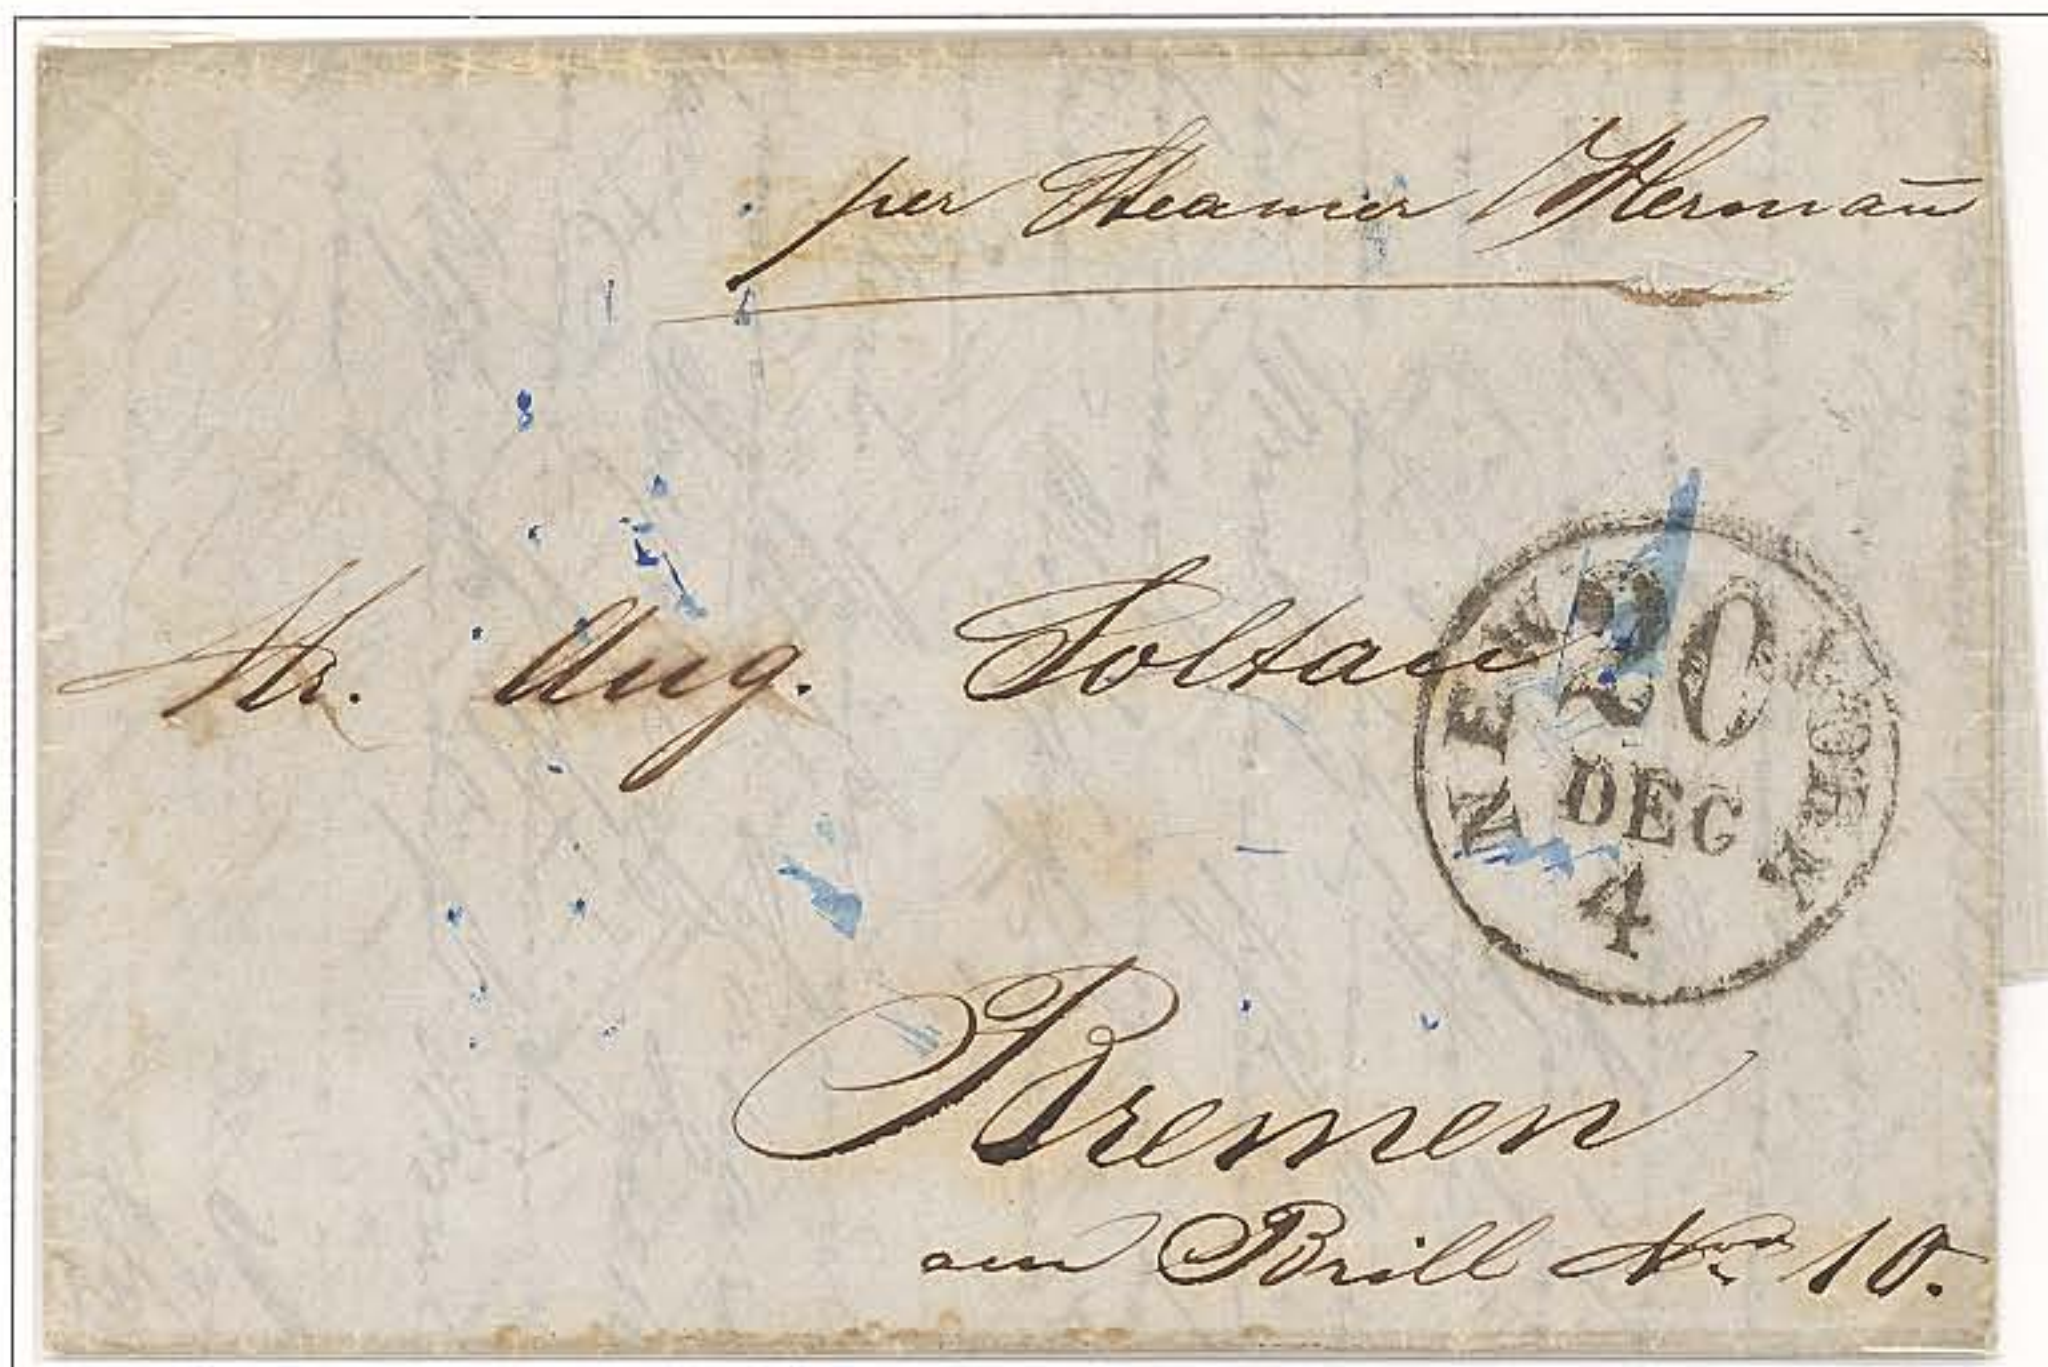 per Steamer Hermañ
Hr. Aug. Soltau
NEW YORK
20
DEC
4
Bremen
am Brill No. 10.